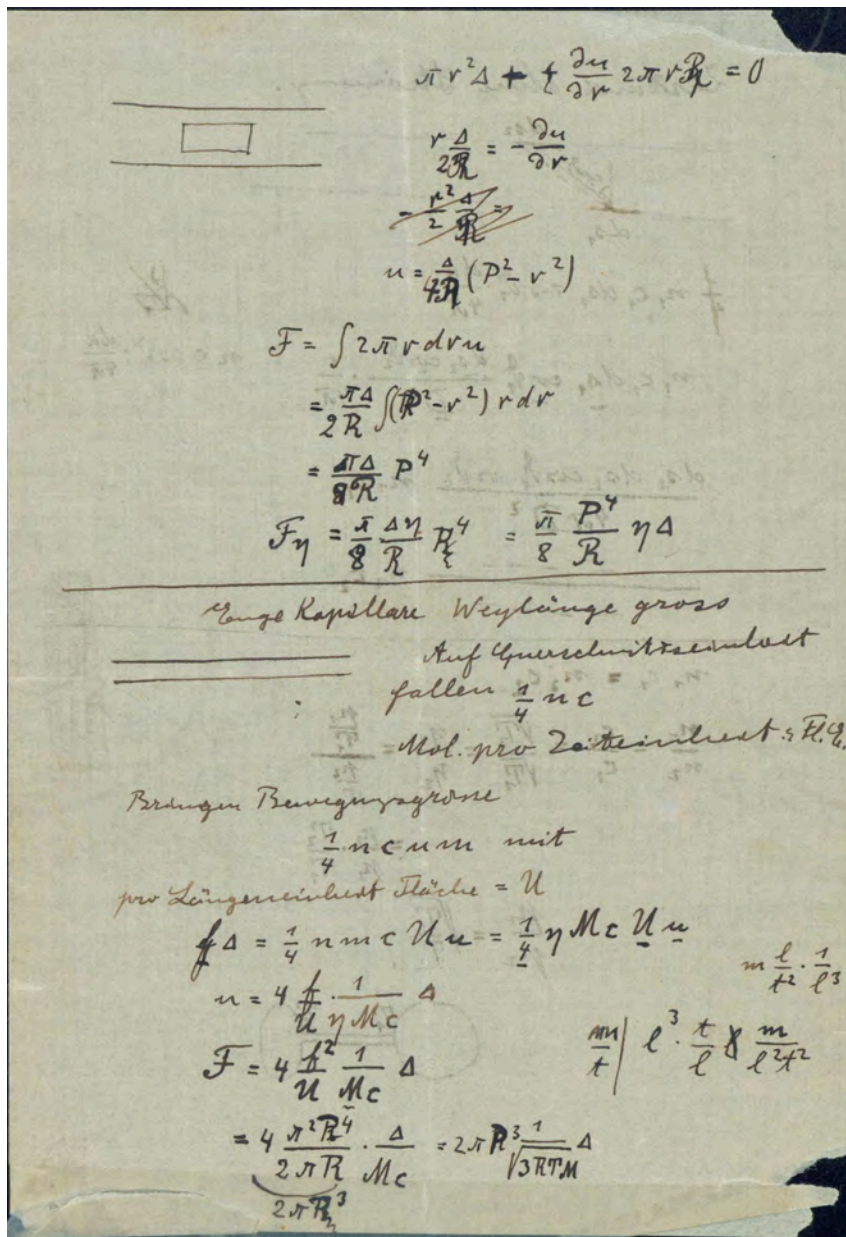 π r² Δ + ∂u/∂r 2 π r R = 0
r/2 Δ/R = - ∂u/∂r
- r²/2 Δ/R =
u = Δ/4R (P² - r²)
F = ∫ 2 π r dr u
= πΔ/2R ∫(P² - r²) r dr
= πΔ/8R P⁴
Fη = π/8 Δη/R P⁴ = π/8 P⁴/R η Δ
Enge Kapillare Weglänge gross
Auf Querschnittseinheit
fallen 1/4 n c
Mol. pro Zeiteinheit u. Fl. E.
Bringen Bewegungsgrösse
1/4 n c u m mit
pro Längeneinheit Fläche = U
f Δ = 1/4 n m c U u = 1/4 η M c U u
m l/t² · 1/l³
u = 4 f/U 1/ηMc Δ
m/t | l³ · t/l m/l²t²
F = 4 f²/U 1/Mc Δ
= 4 π²R⁴/2πR · Δ/Mc = 2πR³ 1/√3RTM Δ
2πR³